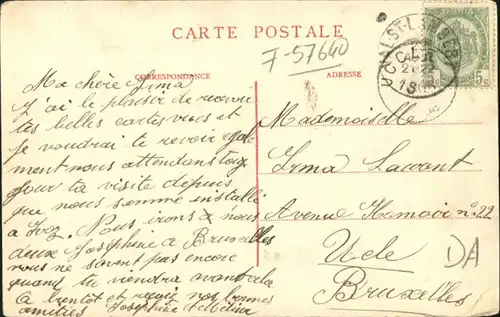 CARTE POSTALE
7-57640
CORRESPONDANCE
ADRESSE
Ma chère Irma
J'ai le plaisir de recevoir
tes belles cartes vues et
je voudrai te revoir égale
ment nous attendons touj
pour ta visite depuis
que nous somme installé
a Nous irons a nous
deux Joséphine a Bruxelles
nous ne savent pas encore
quand tu viendra
a bientôt et reçois nos bonnes
amitiés Joséphine et
Mademoiselle
Irma Laurent
Avenue Hamoir no. 22
Uccle
Bruxelles
DA
5c